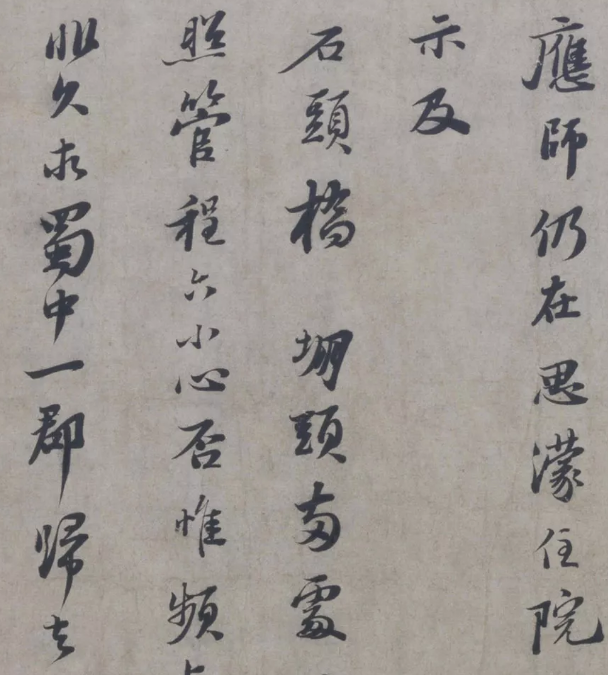 應師仍在思濛住院
示及
石頭橋 堋頭兩處
照管程六小心否惟頻
非久求蜀中一郡歸去